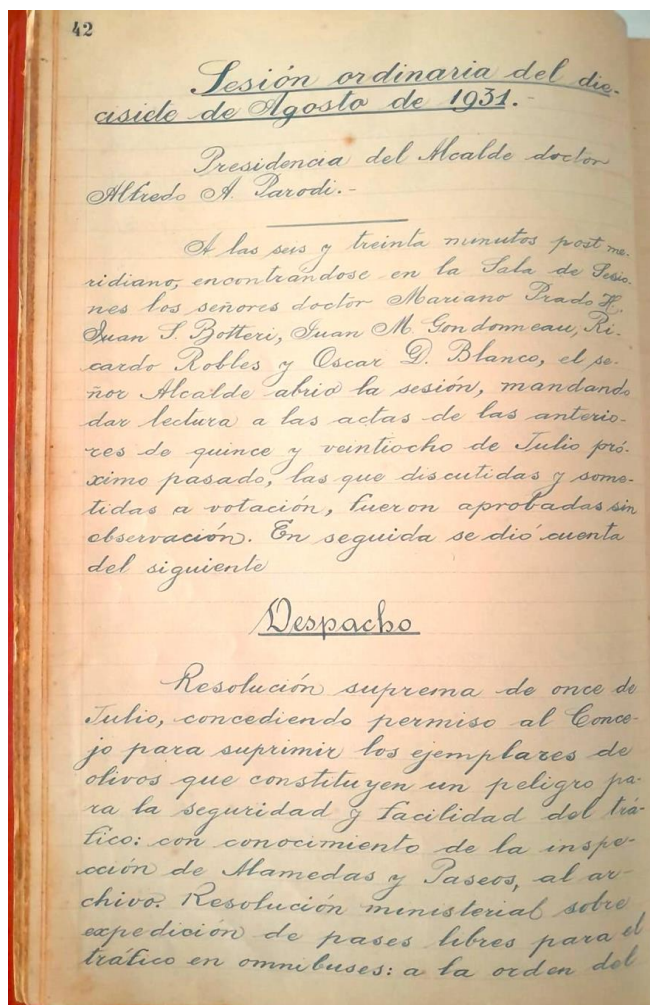 42
Sesión ordinaria del die-
cisiete de Agosto de 1931.-
Presidencia del Alcalde doctor
Alfredo A. Parodi.-
A las seis y treinta minutos post me-
ridiano, encontrándose en la Sala de Sesio-
nes los señores doctor Mariano Prado H,
Juan S. Botteri, Juan M. Gondonneau, Ri-
cardo Robles y Oscar D. Blanco, el se-
ñor Alcalde abrió la sesión, mandando
dar lectura a las actas de las anterio-
res de quince y veintiocho de Julio pró-
ximo pasado, las que discutidas y some-
tidas a votación, fueron aprobadas sin
observación. En seguida se dió cuenta
del siguiente
Despacho
Resolución suprema de once de
Julio, concediendo permiso al Conce-
jo para suprimir los ejemplares de
olivos que constituyen un peligro pa-
ra la seguridad y facilidad del trá-
fico: con conocimiento de la inspe-
cción de Alamedas y Paseos, al ar-
chivo. Resolución ministerial sobre
expedición de pases libres para el
tráfico en omnibuses: a la orden del